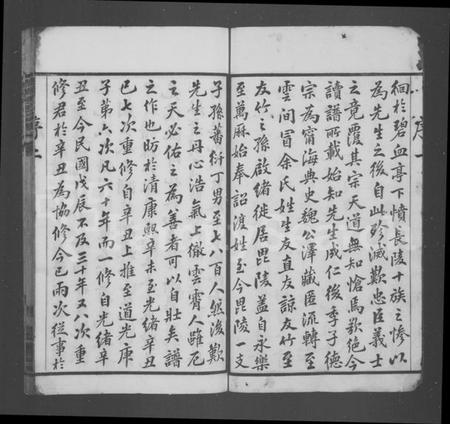 徊於碧血亭下憤長陵十族之慘以
為先生之後自此殄滅歎忠臣義士
之竟覆其宗天道無知愴焉欲絕今
讀譜所載始知先生成仁後季子德
宗為甯海典史魏公澤藏匿流轉至
雲間冒余氏姓生友直友諒友竹至
友竹之孫啟緒徙居毘陵蓋自永樂
至萬厤始奉詔復姓至今毘陵一支
子孫蕃衍丁男至七八百人然後歎
先生之丹心浩氣上徹雲霄人雖厄
之天必佑之為善者可以自壯矣譜
之作也昉於清康熙辛未至光緒辛丑
已七次重修自辛丑上推至道光庚
子第六次凡六十年而一修自光緒辛
丑至今民國戊辰不及三十年又八次重
修君於辛丑為協修今已兩次從事於
序
序二